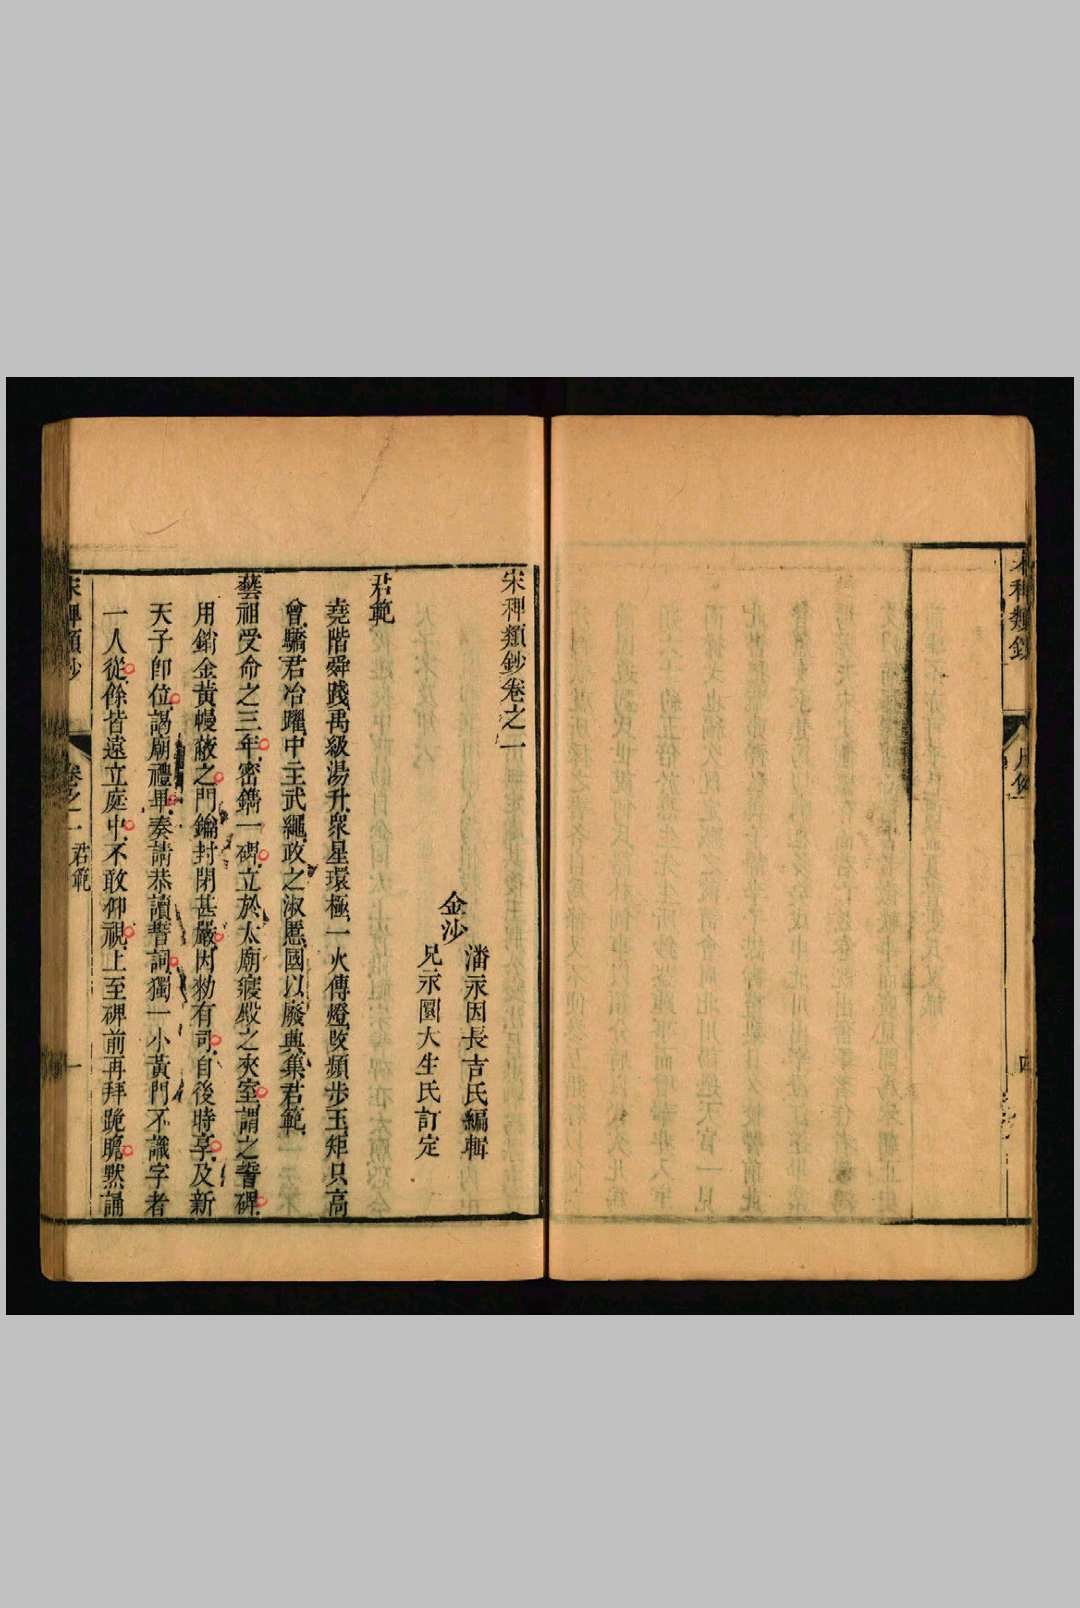 宋稗類鈔
宋稗類鈔卷之一
金沙
潘永因長吉氏編輯
兄永圜大生氏訂定
君範
堯階舜踐禹級湯升衆星環極一火傳燈攺頻步玉矩只高
曾驕君冶躍中主武繩政之淑慝國以廢興集君範
藝祖受命之三年密鐫一碑立於太廟寢殿之夾室謂之誓碑
用銷金黃幔蔽之門鑰封閉甚嚴因勑有司自後時享及新
天子卽位謁廟禮畢奏請恭讀誓詞獨一小黃門不識字者
一人從餘皆遠立庭中不敢仰視上至碑前再拜跪瞻默誦
宋稗類鈔
卷之一
君範
一